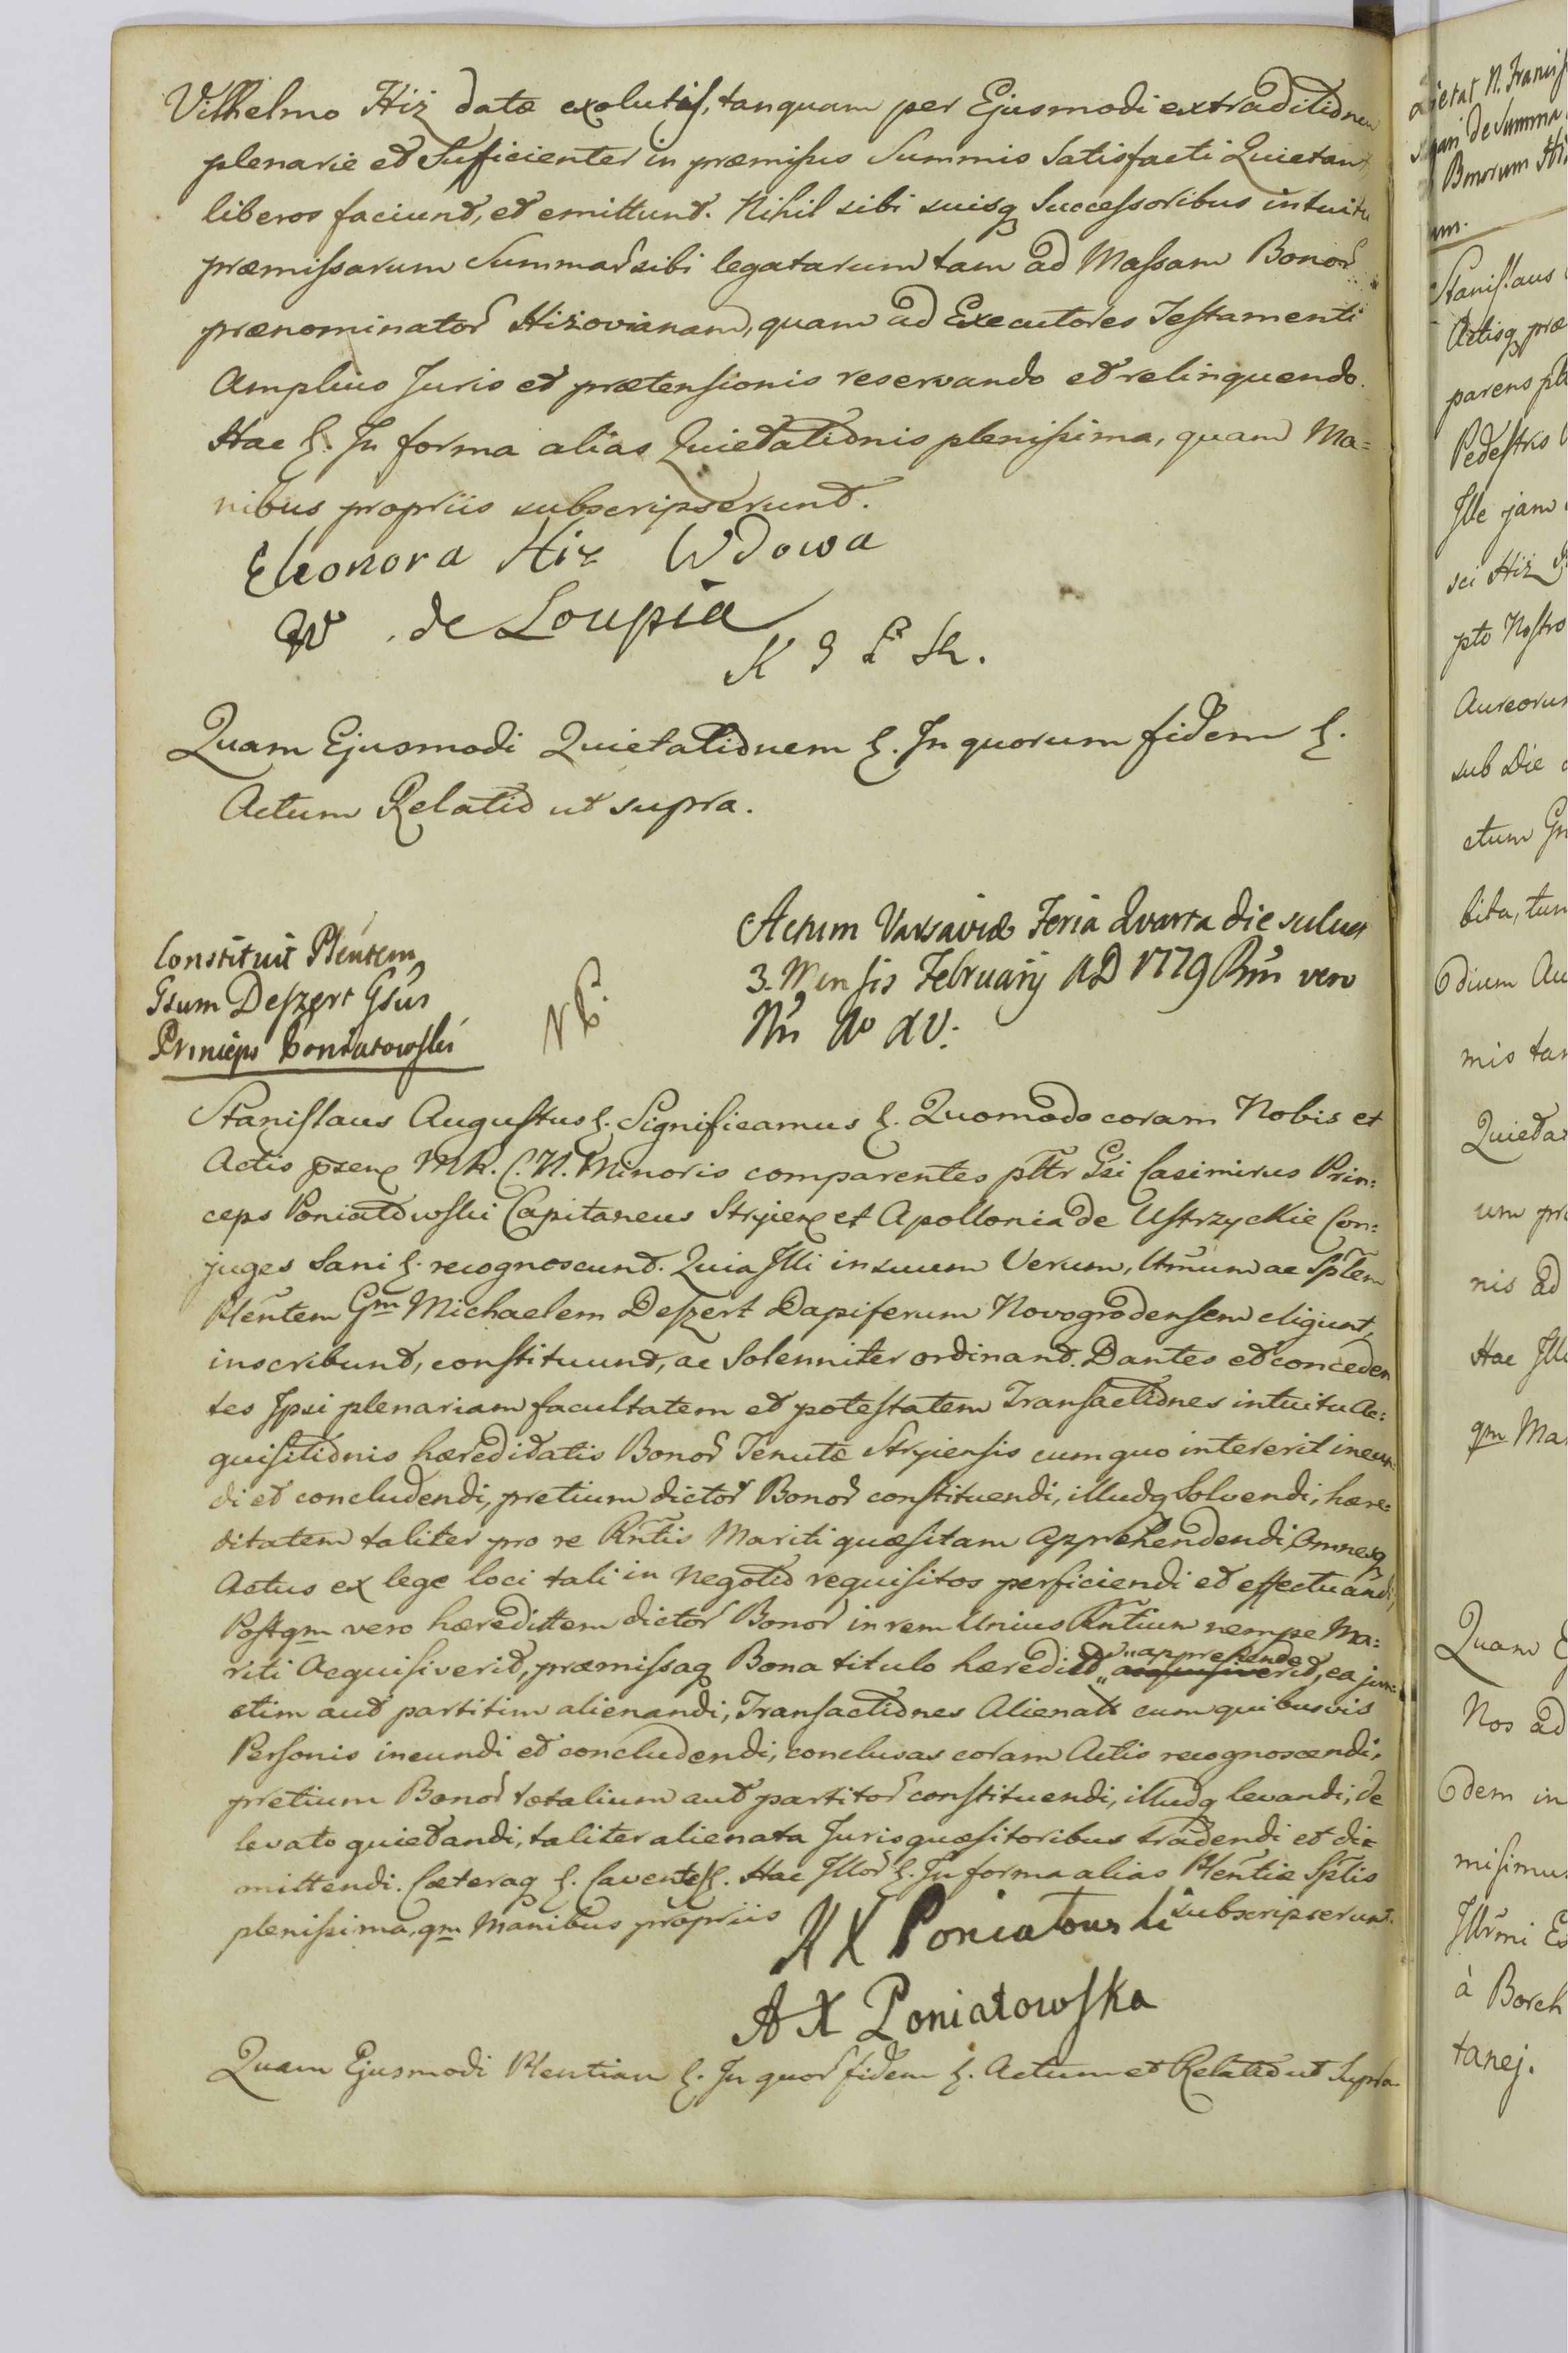 Vilhelmo Hiz datæ exolutis, tanquam per Ejusmodi extraditionem
plenarie et Sufficienter in præmissis Summis Satisfacti Quietant
liberos faciunt, et emittunt. Nihil sibi suisq Successoribus intuitu
præmissarum Summar sibi legatarum tam ad Massam Bonor
prænominator Hizovianam, quam ad Executores Testamenti
Amplius Juris et prætensionis reservando et relinquendo.
Hac &. In forma alias Quietationis plenissima, quam Ma=
nibus propriis subscripserunt.
Eleonora Hiz Wdowa
de Loupia
Quam Ejusmodi Quietationem &. In quorum fidem &.
Actum Relatio ut supra.
Constituit Plentem
Gsum Deszert Gsus
Princeps Poniatowski
NP.
Actum Varsaviæ Feria Quarta die
3. Mensis February AD 1779 Rni vero
Nri Ao XV.
Stanislaus Augustus &. Significamus &. Quomodo coram Nobis et
Actis M.R.C.N. Minoris comparentes plttr Gsi Casimirus Prin:
ceps Poniatowski Capitaneus Stryien et Apollonia de Ustrzyckie Con:
juges Sani &. recognoscunt. Quia Illi in suum Verum, ltmum ac Splem
Plentem Gm Michaelem Deszert Dapiferum Novogrodensem eligunt,
inscribunt, constituunt, ac Solenniter ordinant. Dantes et conceden
tes Ipsi plenariam facultatem et potestatem Transactiones intuitu Ac:
quisitionis hæreditatis Bonor Tenutæ Stryiensis cum quo intererit ineun:
di et concludendi, pretium dictor Bonor constituendi, illudq Solvendi, hære:
ditatem taliter pro re Rntis Mariti quæsitam apprehendendi, Omnesq
Actus ex lege loci tali in Negotio requisitos perficiendi et effectuandi,
Postqm vero hæredittem dictor Bonor in rem Unius Rntium nempe Ma:
riti Acquisiverit, præmissaq Bona titulo hæredit apprehende acquisiverit, ea jun:
ctim aut partitim alienandi, Transactiones Alienat cum quibusvis
Personis ineundi et concludendi, conclusas coram Actis recognoscendi,
pretium Bonor totalium aut partitor constituendi, illudq levandi, de
levato quietandi, taliter alienata Juris quæsitoribus tradendi et di=
mittendi. Cæteraq &. Cavente &. Hac Illor &. In forma alias Plentiæ Splis
plenissima, qm Manibus propriis subscripserunt.
K X Poniatowski
A X Poniatowska
Quam Ejusmodi Plentiam &. In quor fidem &. Actum et Relatio ut Supra
N. Francis
de Summa
Bonorum
Stanislaus
Actisq præ
parens plt
Pedestris
Ille jam
sci Hiz
pto Nostro
Aureorum
sub Die
ctum Gn
bita, tum
dium Au
mis tan
Quietat
um pro
nis ad
Hac Illo
qm Ma
Quam E
Nos ad
dem in
misimus
Illrmi Ex
à Borch
tanej.